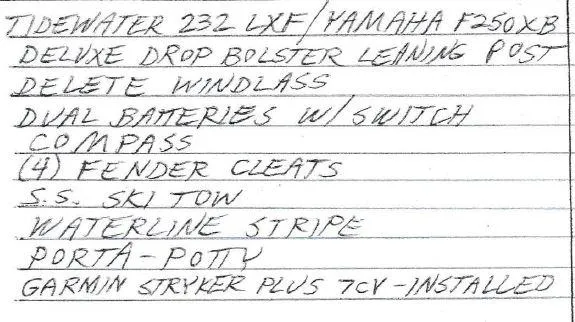 TIDEWATER 232 LXF/YAMAHA F250XB
DELUXE DROP BOLSTER LEANING POST
DELETE WINDLASS
DUAL BATTERIES W/SWITCH
COMPASS
(4) FENDER CLEATS
S.S. SKI TOW
WATERLINE STRIPE
PORTA-POTTY
GARMIN STRYKER PLUS 7CV-INSTALLED